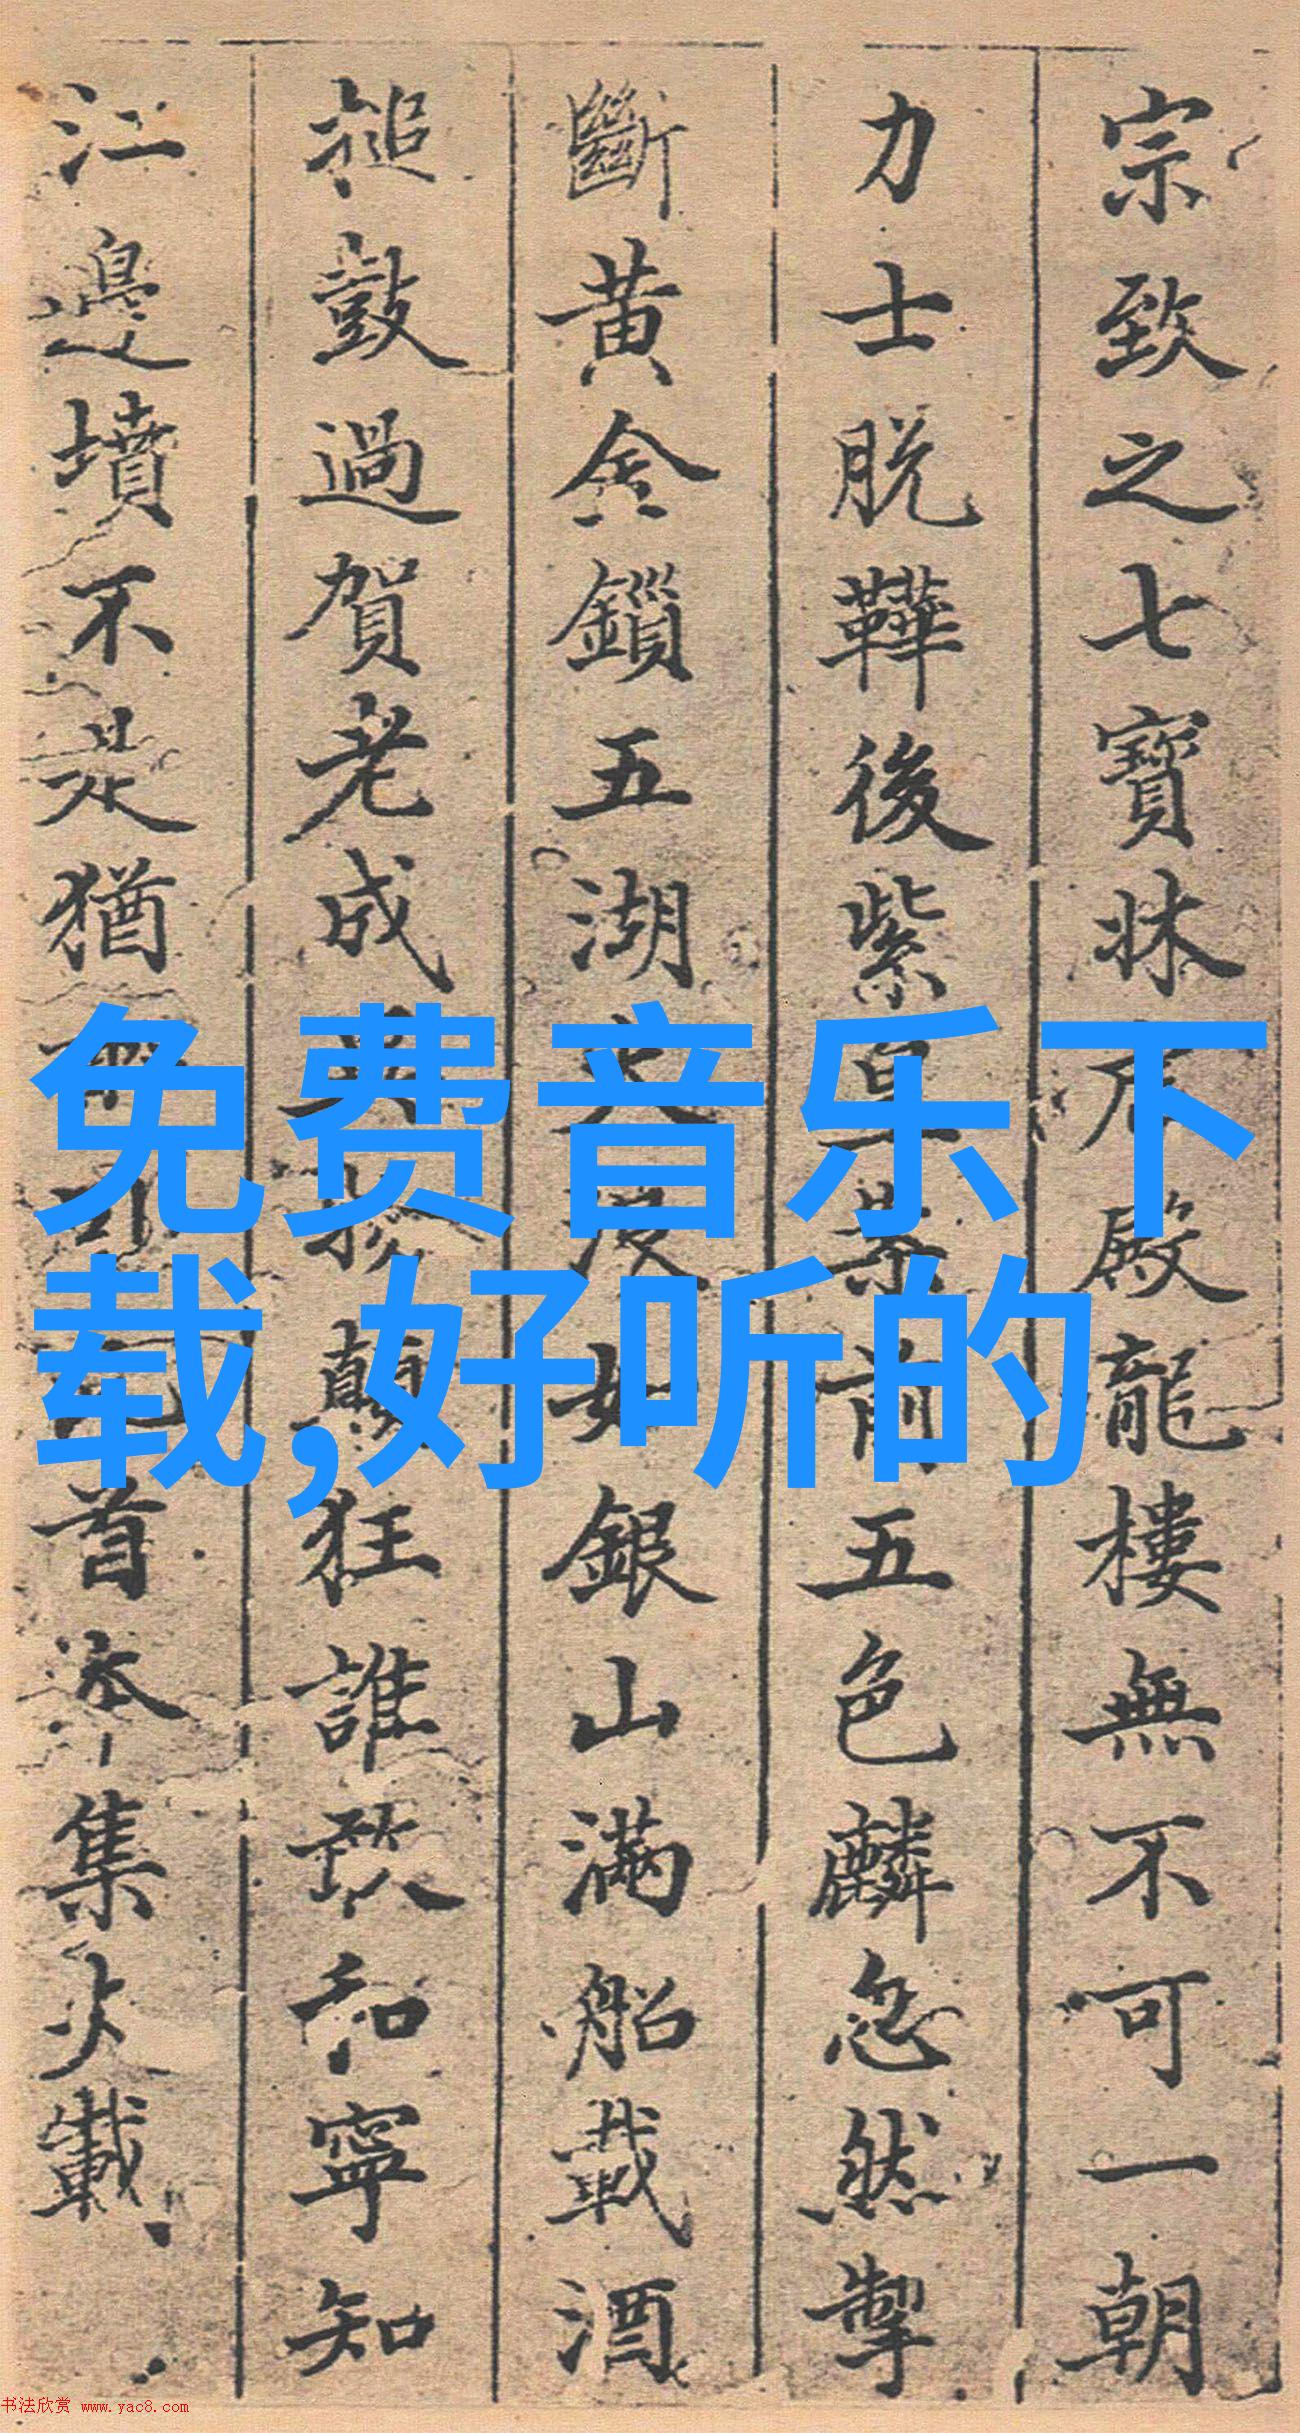 宗致之七寶牀殿龍樓無不可一朝
力士脱鞾後紫前五色麟忽然掣
斷黄金鎖五湖大如銀山滿船載酒
搥鼓過賀老成顛狂誰敢和寧知
江邊墳不是猶首本集失載
免费音乐下
载,好听的
书法欣赏 www.yac8.com